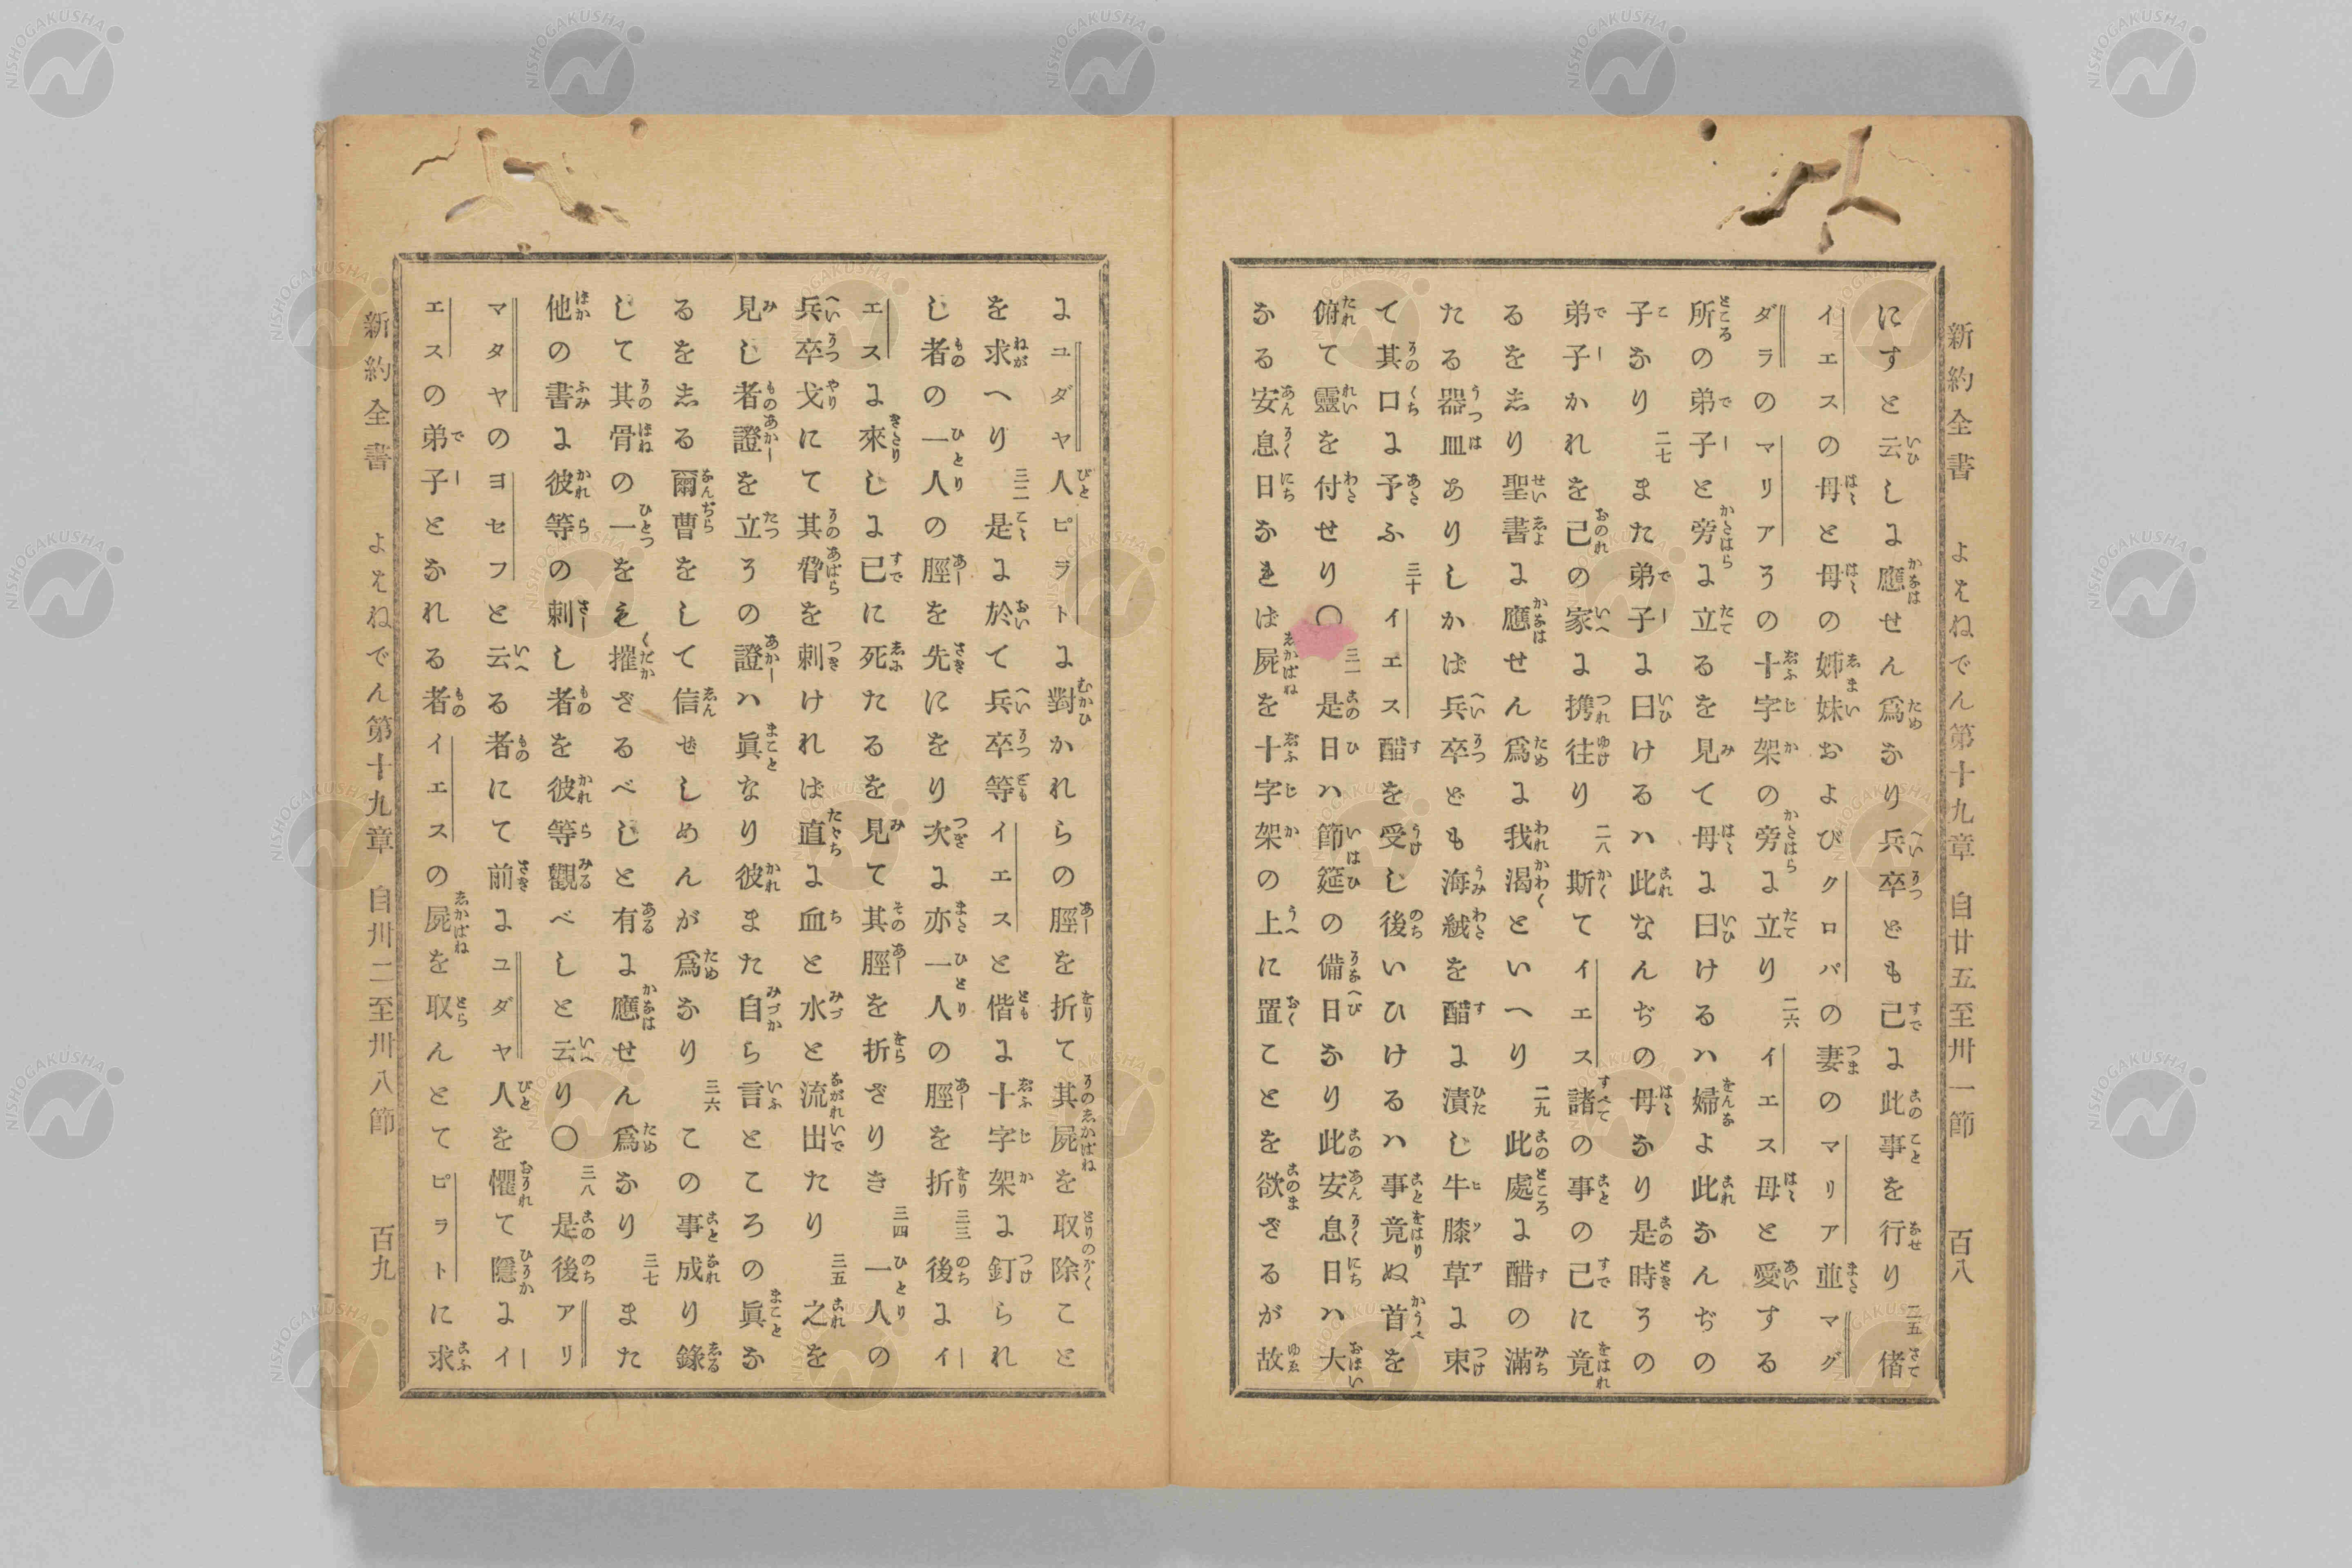 新約全書 よはねでん第十九章 自廿五至卅一節 百八
にすと云しに應せん爲なり兵卒ども已に此事を行なせり 二五 偖
イエスの母と母の姉妹およびクロパの妻のマリア並マグ
ダラのマリアその十字架の旁に立り 二六 イエス母と愛する
所の弟子と旁に立るを見て母に曰けるハ婦よ此なんぢの
子なり 二七 また弟子に曰けるハ此なんぢの母なり是時その
弟子かれを己の家に携往り 二八 斯てイエス諸の事の已に竟
るをしり聖書に應せん爲に我渇といへり 二九 此處に醋の滿
たる器皿ありしかば兵卒ども海絨を醋に漬し牛膝草に束
て其口に予ふ 三十 イエス醋を受し後いひけるハ事竟ぬ首を
俯て靈を付せり〇 三一 是日ハ節筵の備日なり此安息日ハ大
なる安息日なれば屍を十字架の上に置ことを欲ざるが故
にユダヤ人ピラトに對かれらの脛を折て其屍を取除こと
を求へり 三二 是に於て兵卒等イエスと偕に十字架に釘られ
し者の一人の脛を先にをり次に亦一人の脛を折 三三 後にイ
エスに來しに已に死たるを見て其脛を折ざりき 三四 一人の
兵卒戈にて其脅を刺ければ直に血と水と流出たり 三五 之を
見し者證を立その證ハ眞なり彼また自ら言ところの眞な
るをしる爾曹をして信ぜしめんが爲なり 三六 この事成り錄
して其骨の一をも摧ざるべしと有に應せん爲なり 三七 また
他の書に彼等の刺し者を彼等觀べしと云り〇 三八 是後アリ
マタヤのヨセフと云る者にて前にユダヤ人を懼て隱にイ
エスの弟子となれる者イエスの屍を取んとてピラトに求
新約全書 よはねでん第十九章 自卅二至卅八節 百九